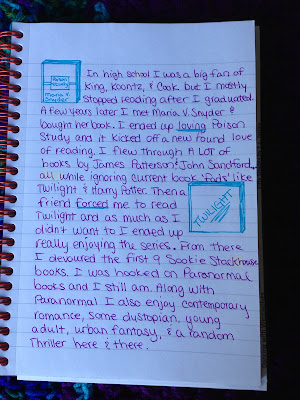 Poison
Study
Maria V.
Snyder
In high school I was a big fan of
King, Koontz, & Cook but I mostly
stopped reading after I graduated.
A few years later I met Maria V. Snyder &
bought her book. I ended up loving Poison
Study and it kicked off a new found love
of reading. I flew through A LOT of
books by James Patterson & John Sandford,
all while ignoring current book 'fads' like
Twilight & Harry Potter. Then a
friend forced me to read
Twilight and as much as I
didn't want to I ended up
really enjoying the series. From there
TWILIGHT
I devoured the first 9 Sookie Stackhouse
books. I was hooked on Paranormal
books and I still am. Along with
Paranormal I also enjoy contemporary
romance, some dystopian, young
adult, urban fantasy, & a random
Thriller here & there.